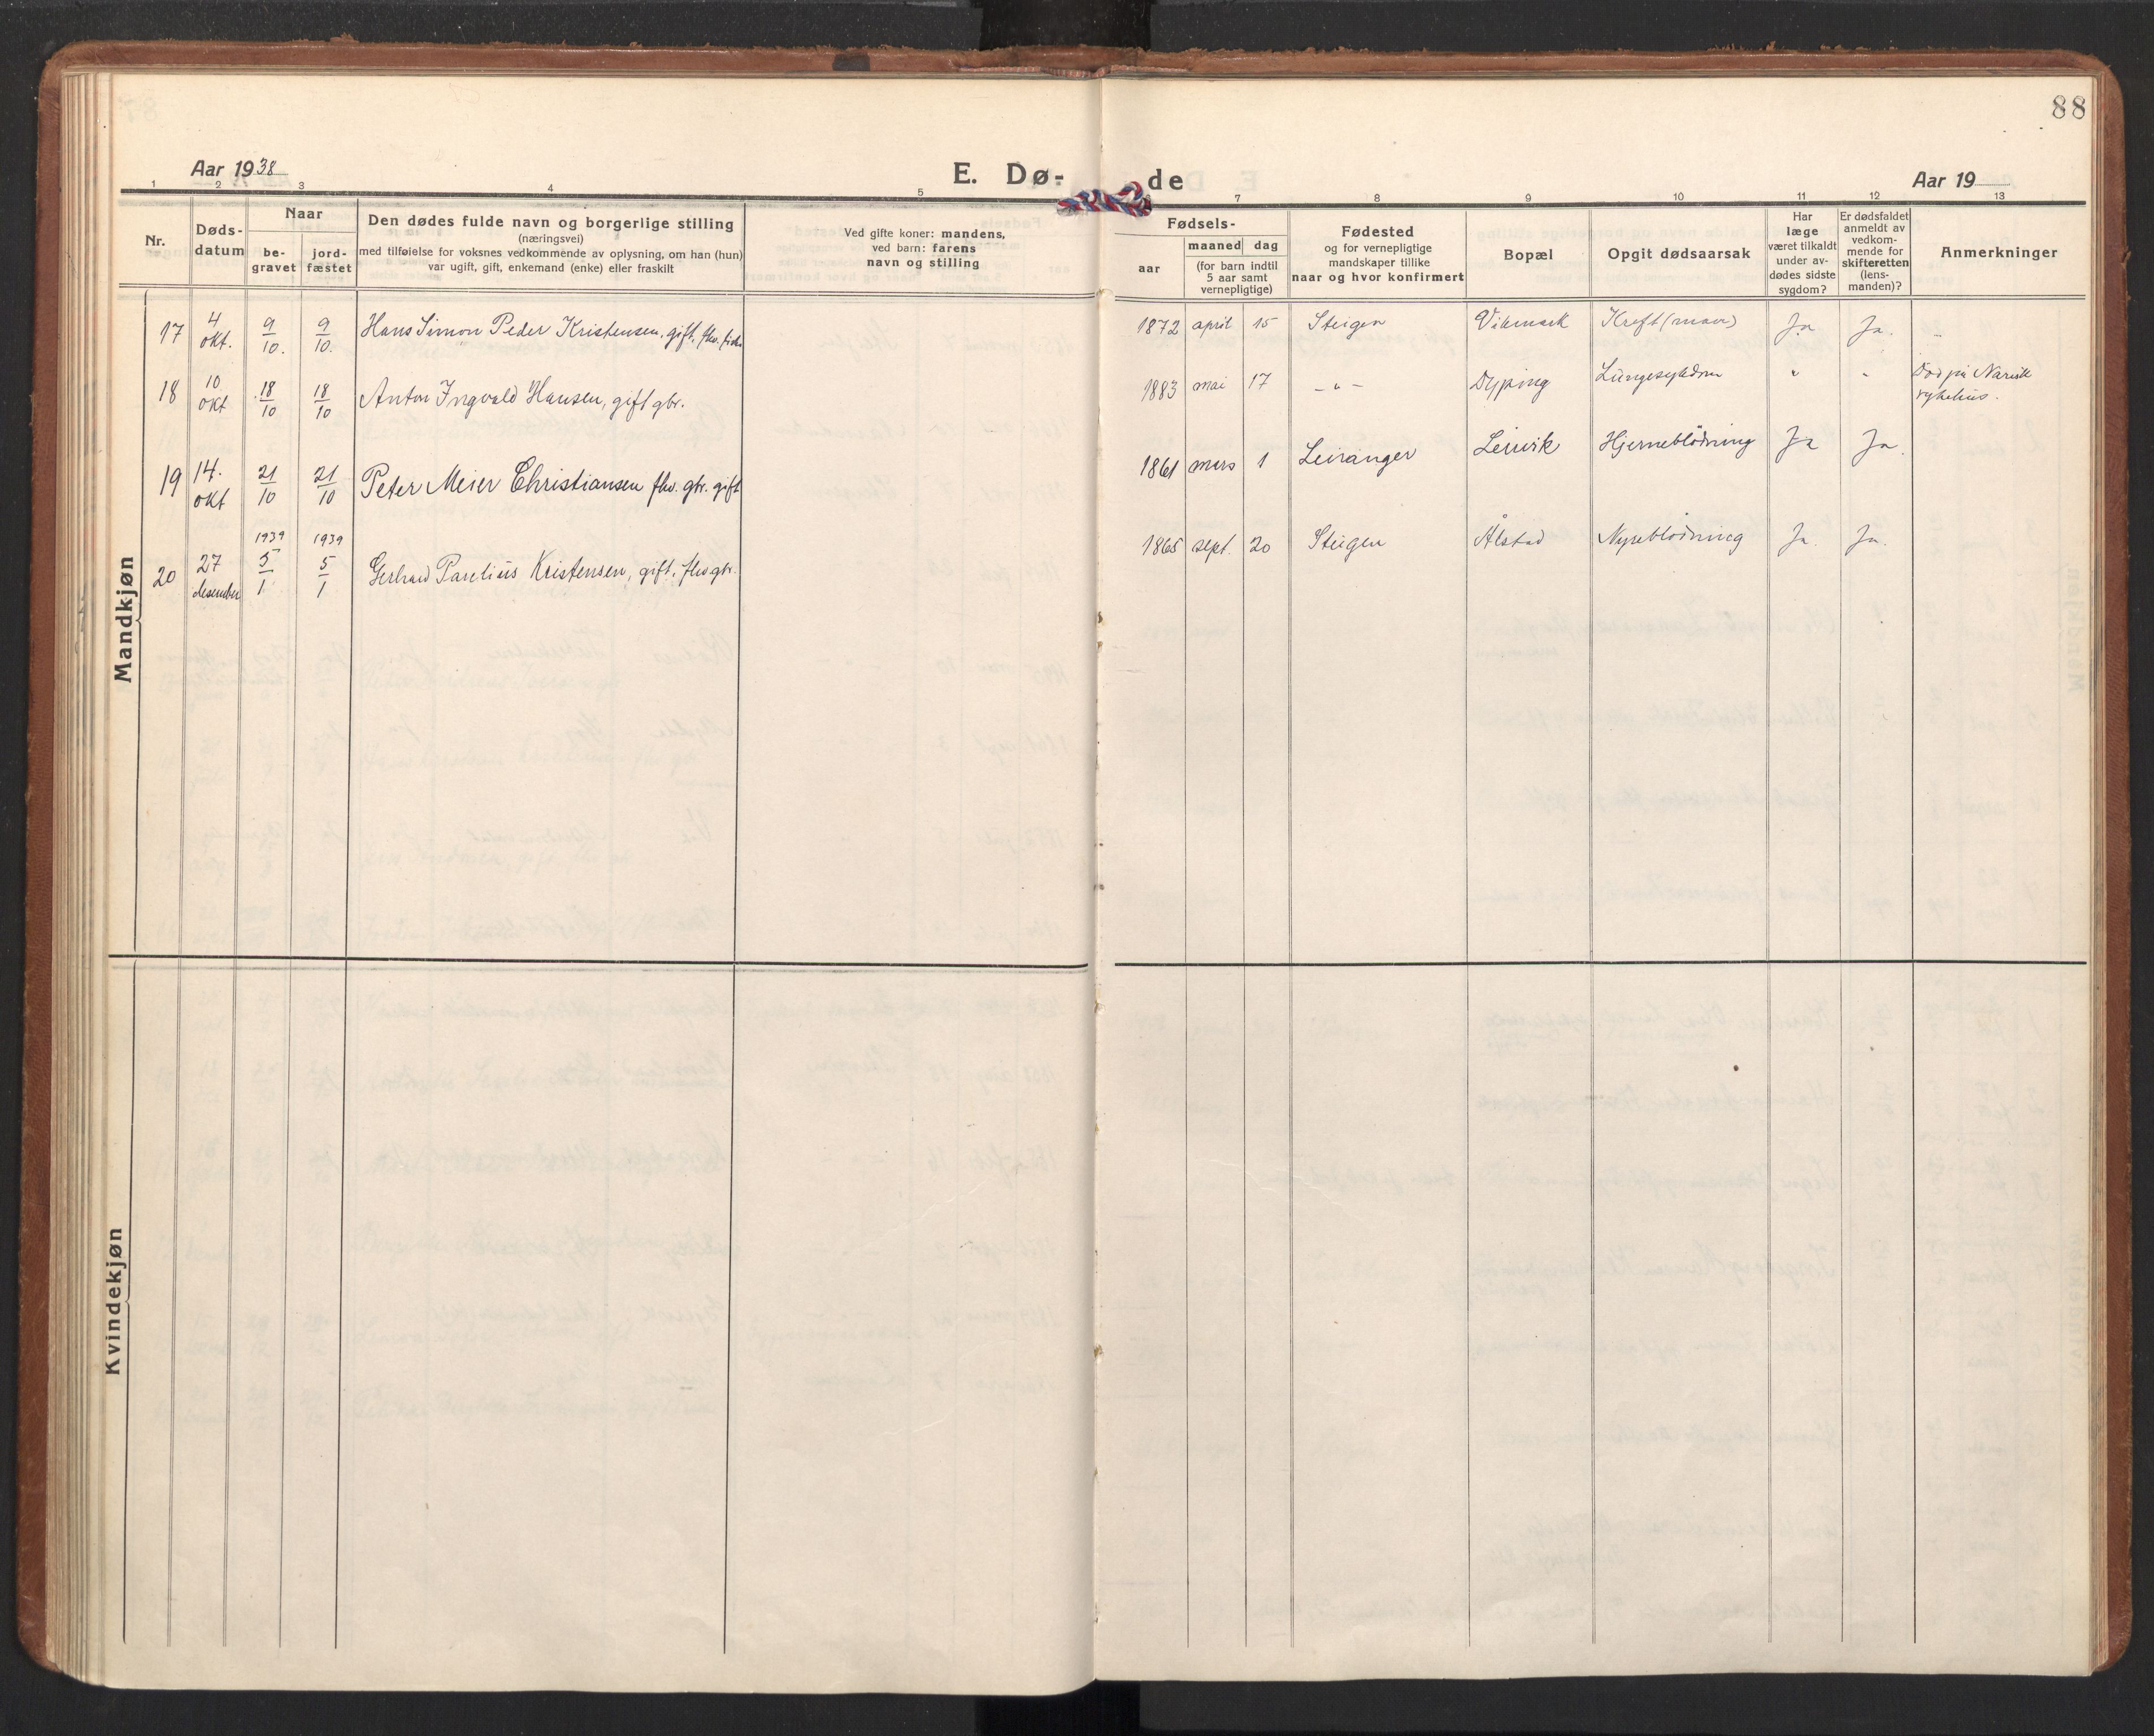 88
Aar 1938
E. Dø-
de
Aar 19
1 2 3 4 5 7 8 9 10 11 12 13
Nr.
Døds-
datum
Naar
be-
gravet
jord-
fæstet
Den dødes fulde navn og borgerlige stilling
(næringsvei)
med tilføielse for voksnes vedkommende av oplysning, om han (hun)
var ugift, gift, enkemand (enke) eller fraskilt
Ved gifte koner: mandens,
ved barn: farens
navn og stilling
Fødsels-
aar
maaned dag
(for barn indtil
5 aar samt
vernepligtige)
Fødested
og for vernepligtige
mandskaper tillike
naar og hvor konfirmert
Bopæl
Opgit dødsaarsak
Har
læge
været tilkaldt
under av-
dødes sidste
sygdom?
Er dødsfaldet
anmeldt av
vedkom-
mende for
skifteretten
(lens-
manden)?
Anmerkninger
Mandkjøn
17 4 okt. 9/10. 9/10. Hans Simon Peder Kristensen, gift, fhv. fisk. 1872 april 15 Steigen Kreft (mave) Ja Ja.
18 10 okt 18/10 18/10 Anton Ingvald Hansen, gift gbr. 1883 mai 17 - " - Dyping Lungesykdom " " Død på Narvik
sykehus.
19 14. okt 21/10 21/10 Peter Meier Christiansen fhv. gbr. gift 1861 mars 1 Leiranger Leirvik Hjerneblødning Ja Ja.
1939 1939
20 27 desember 5/1 5/1 Gerhard Parelius Kristensen, gift, fhv gbr. 1865 sept. 20 Steigen Ålstad Nyreblødning Ja. Ja.
Kvindekjøn